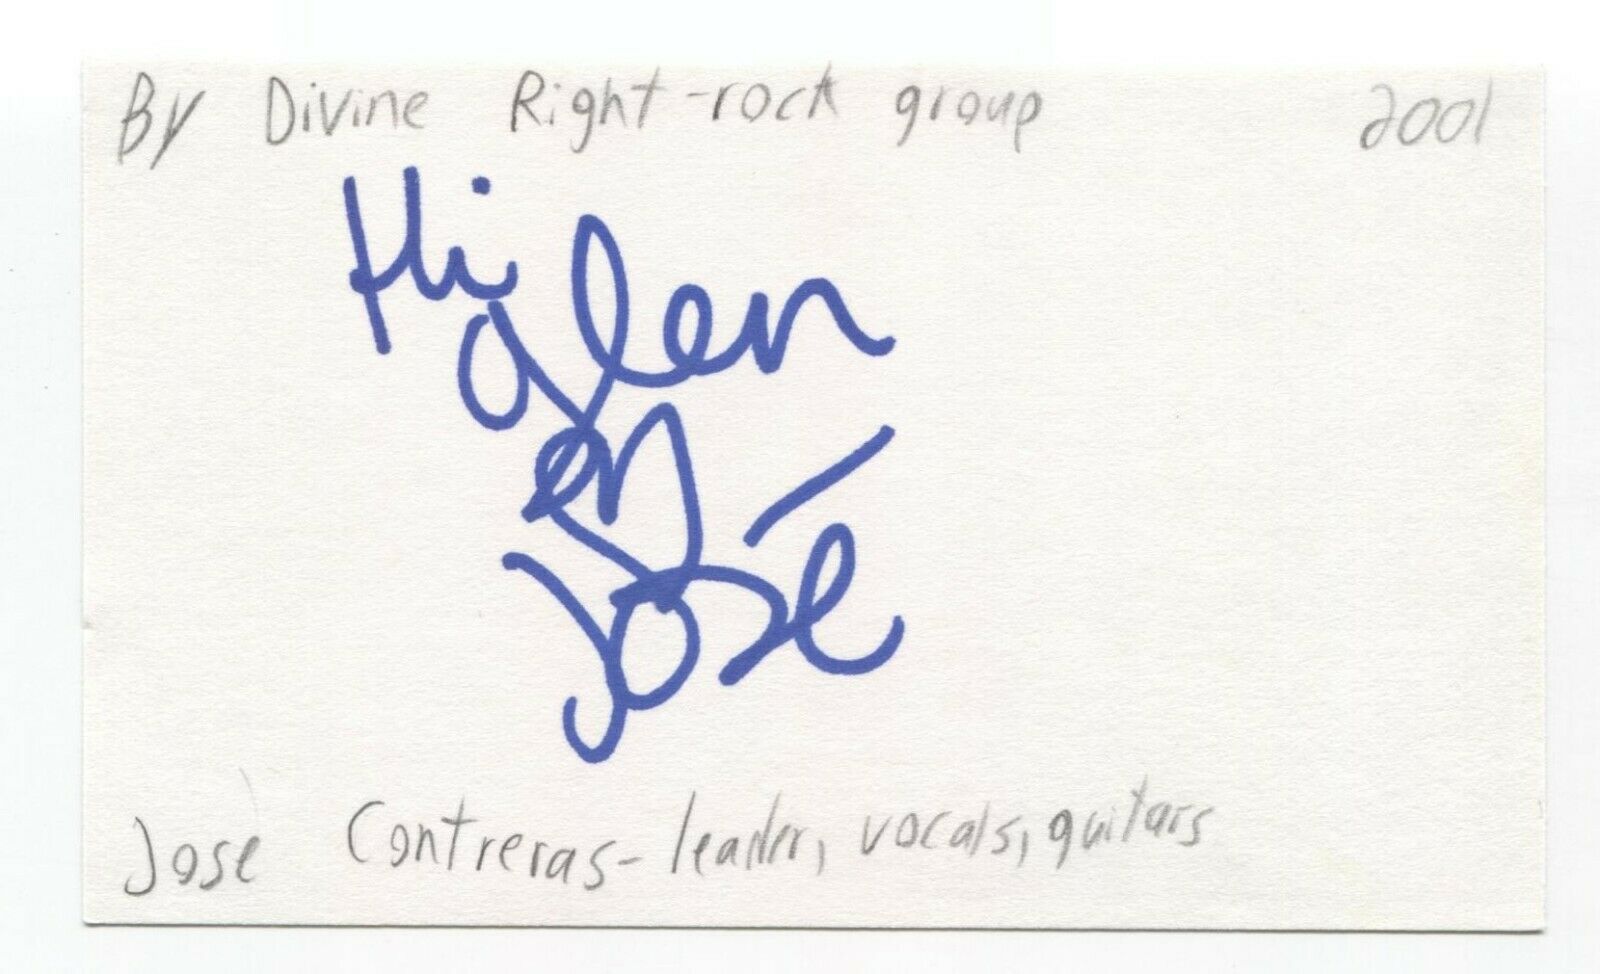 By Divine Right-rock group 2001
Hi
glen
José
José Contreras-leader, vocals, guitars